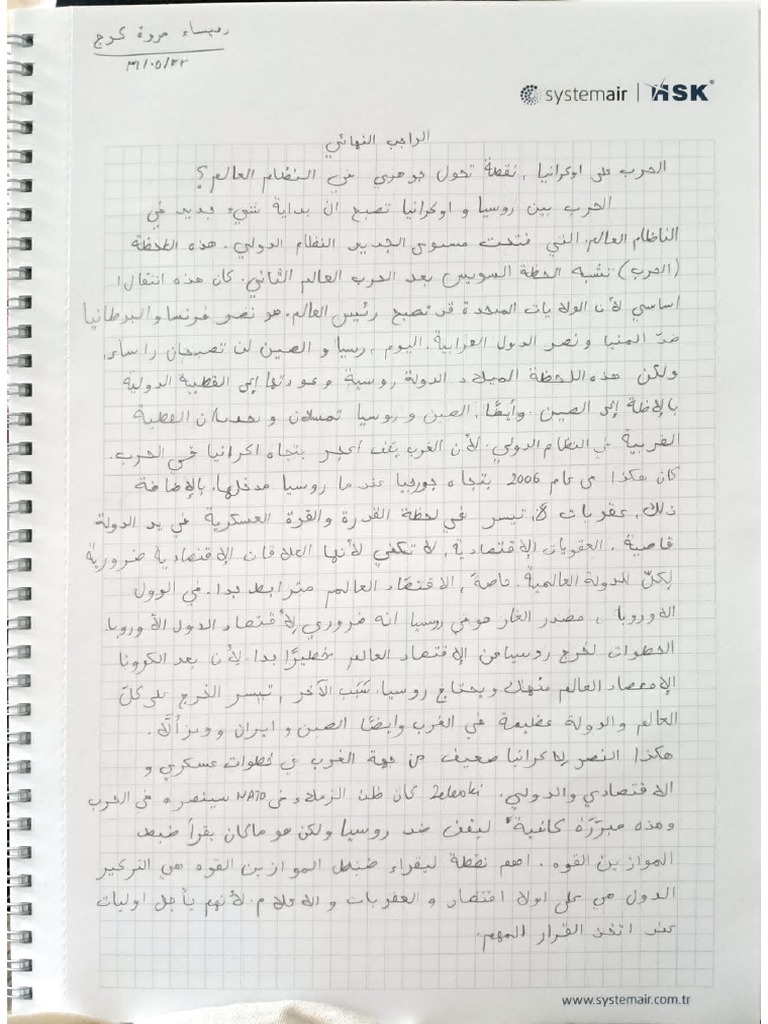 رميساء مروة كرج
٣١/٠٥/٢٢
systemair | HSK®
الواجب النهائي
الحرب على اوكرانيا , نقطة تحول جوهري في النظام العالم؟
الحرب بين روسيا و اوكرانيا تصبح ان بداية شيء جديد في
الناظام العالم. التي فتحت مستوى الجديد النظام الدولي. هذه اللحظة
(الحرب) تشبه الحظة السويس بعد الحرب العالم الثاني. كان هذه انتقال!
اساسي لأن الولايات المتحدة قد تصبح رئيس العالم. هو نصر فرنسا والبرطانيا
ضدّ المنيا و نصر الدول العرابية. اليوم , رسيا و الصين لن تصبحان راساء,
ولكن هذه اللحظة الميلاد الدولة روسية وعودتها إلى القطبية الدولية
بالإظة إلى الصين. وأيضًا, الصين و روسيا تمسلان و تحديان القطبة
الغربية في النظام الدولي. لأن الغرب يقف بتجاه اكرانيا في الحرب.
كان هكذا في عام 2006 بتجاه جورجيا عند ما روسيا مدخلها. بالإضافة
ذلك, عقوبات تيسر في لحظة القدرة والقوة العسكرية في يد الدولة
قاصية. العقوبات الإقتصادية, لا تكفي لأنها العلاقان الإقتصادية ضرورية
لكلّ للدولة العالمية. خاصة, الاقتصاد العالم مترابط بدا. في الوول
الاوروبا , مصدر الغاز هو في روسيا انه ضروري لأقتصاد الدول الأوروبا.
الخطوات لخرج روسيا من الإقتصاد العالم خطيرًا بدا. لأن بعد الكرونا
الإقتصاد العالم منهك ويحتاج روسيا. سبب الآخر , تيسر الخرج على كلّ
العالم والدولة عظيمة في الغرب وايضًا الصين و ايران و
هكذا النصر لاكرانيا ضعيف من جهة الغرب في خطوات عسكري و
الاقتصادي والدولي. Zelenski كان ظن الزملاء في NATO سينصره في الحرب
وهذه مبرّرة كافية ليقف ضد روسيا ولكن هو ماكان يقرأ ضبط
الموازين القوه. اهم نقطة ليقراء ضبط الموازين القوه هي التركير
الدول هي على اولا اقتصاد و العقوبات و الاعلام. لأنهم يأجل اوليات
عند اتخذ القرار المهم.
www.systemair.com.tr